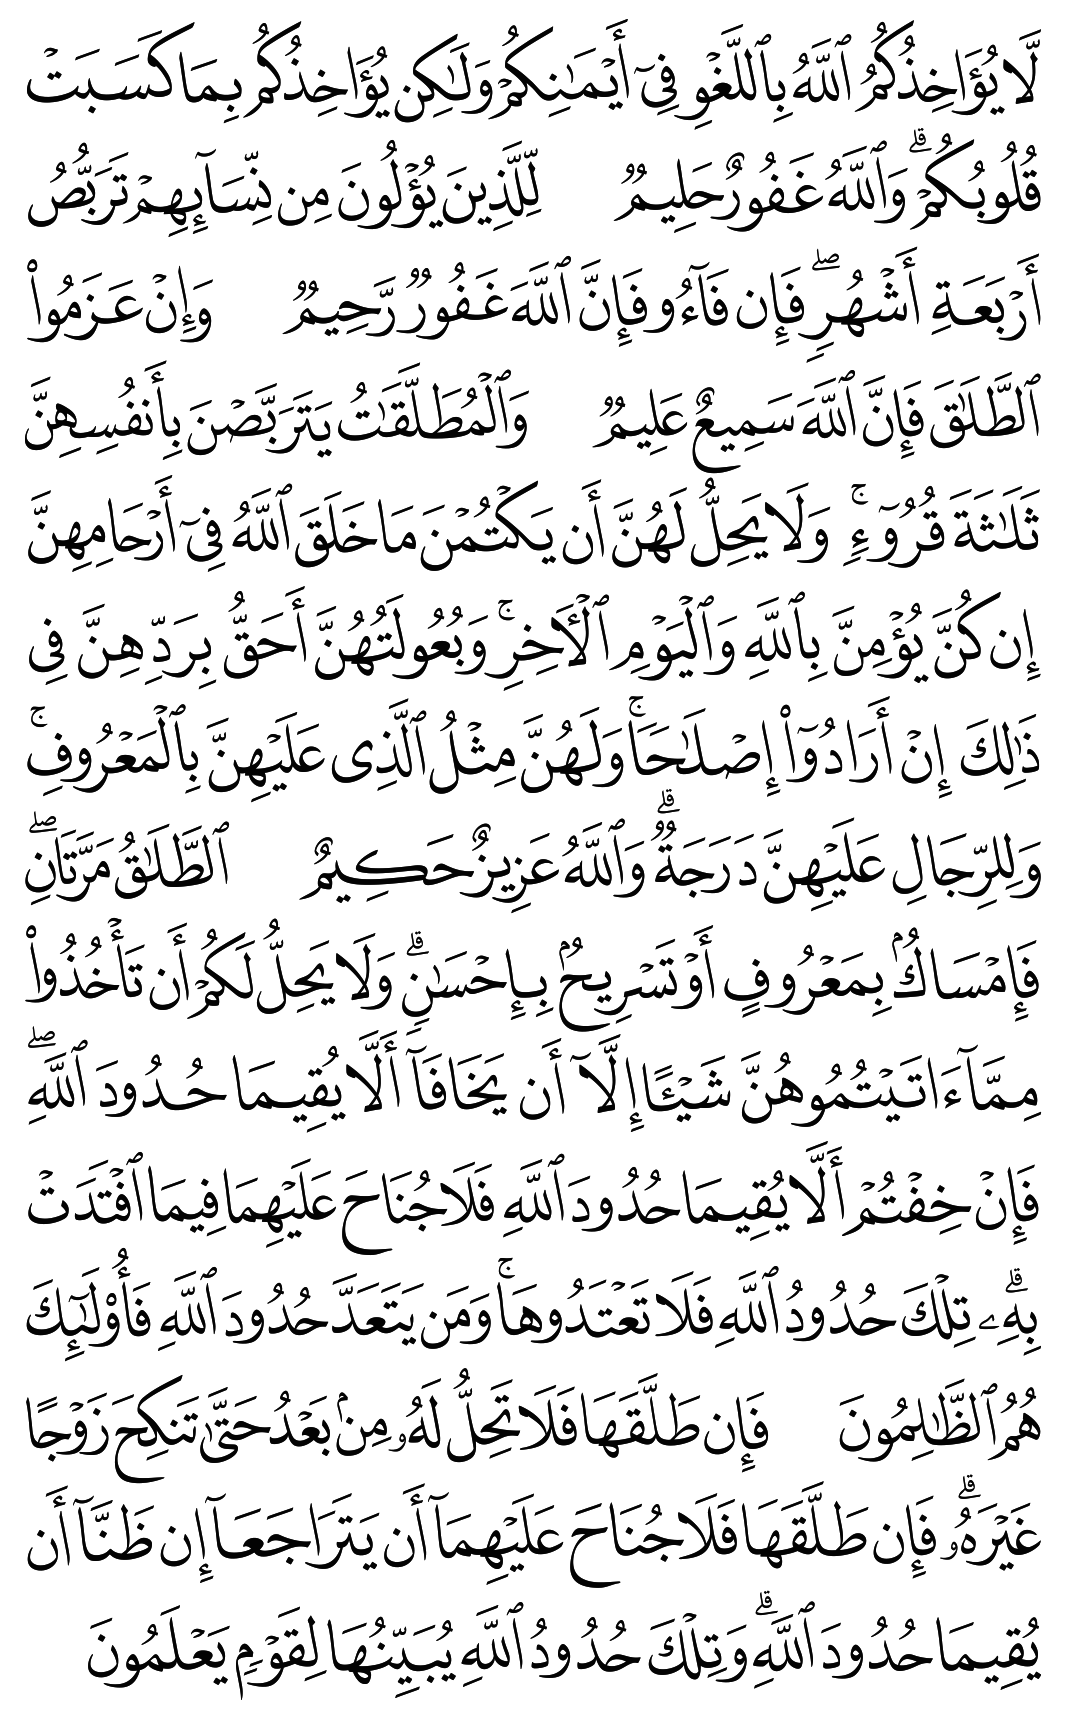 لَّا يُؤَاخِذُكُمُ ٱللَّهُ بِٱللَّغْوِ فِىٓ أَيْمَـٰنِكُمْ وَلَـٰكِن يُؤَاخِذُكُم بِمَا كَسَبَتْ
قُلُوبُكُمْ ۗ وَٱللَّهُ غَفُورٌ حَلِيمٌ لِّلَّذِينَ يُؤْلُونَ مِن نِّسَآئِهِمْ تَرَبُّصُ
أَرْبَعَةِ أَشْهُرٍ ۖ فَإِن فَآءُو فَإِنَّ ٱللَّهَ غَفُورٌ رَّحِيمٌ وَإِنْ عَزَمُوا۟
ٱلطَّلَـٰقَ فَإِنَّ ٱللَّهَ سَمِيعٌ عَلِيمٌ وَٱلْمُطَلَّقَـٰتُ يَتَرَبَّصْنَ بِأَنفُسِهِنَّ
ثَلَـٰثَةَ قُرُوٓءٍ ۚ وَلَا يَحِلُّ لَهُنَّ أَن يَكْتُمْنَ مَا خَلَقَ ٱللَّهُ فِىٓ أَرْحَامِهِنَّ
إِن كُنَّ يُؤْمِنَّ بِٱللَّهِ وَٱلْيَوْمِ ٱلْـَٔاخِرِ ۚ وَبُعُولَتُهُنَّ أَحَقُّ بِرَدِّهِنَّ فِى
ذَٰلِكَ إِنْ أَرَادُوٓا۟ إِصْلَـٰحًا ۚ وَلَهُنَّ مِثْلُ ٱلَّذِى عَلَيْهِنَّ بِٱلْمَعْرُوفِ ۚ
وَلِلرِّجَالِ عَلَيْهِنَّ دَرَجَةٌ ۗ وَٱللَّهُ عَزِيزٌ حَكِيمٌ ٱلطَّلَـٰقُ مَرَّتَانِ ۖ
فَإِمْسَاكٌۢ بِمَعْرُوفٍ أَوْ تَسْرِيحٌۢ بِإِحْسَـٰنٍ ۗ وَلَا يَحِلُّ لَكُمْ أَن تَأْخُذُوا۟
مِمَّآ ءَاتَيْتُمُوهُنَّ شَيْـًٔا إِلَّآ أَن يَخَافَآ أَلَّا يُقِيمَا حُدُودَ ٱللَّهِ ۖ
فَإِنْ خِفْتُمْ أَلَّا يُقِيمَا حُدُودَ ٱللَّهِ فَلَا جُنَاحَ عَلَيْهِمَا فِيمَا ٱفْتَدَتْ
بِهِۦ ۗ تِلْكَ حُدُودُ ٱللَّهِ فَلَا تَعْتَدُوهَا ۚ وَمَن يَتَعَدَّ حُدُودَ ٱللَّهِ فَأُو۟لَـٰٓئِكَ
هُمُ ٱلظَّـٰلِمُونَ فَإِن طَلَّقَهَا فَلَا تَحِلُّ لَهُۥ مِنۢ بَعْدُ حَتَّىٰ تَنكِحَ زَوْجًا
غَيْرَهُۥ ۗ فَإِن طَلَّقَهَا فَلَا جُنَاحَ عَلَيْهِمَآ أَن يَتَرَاجَعَآ إِن ظَنَّآ أَن
يُقِيمَا حُدُودَ ٱللَّهِ ۗ وَتِلْكَ حُدُودُ ٱللَّهِ يُبَيِّنُهَا لِقَوْمٍ يَعْلَمُونَ